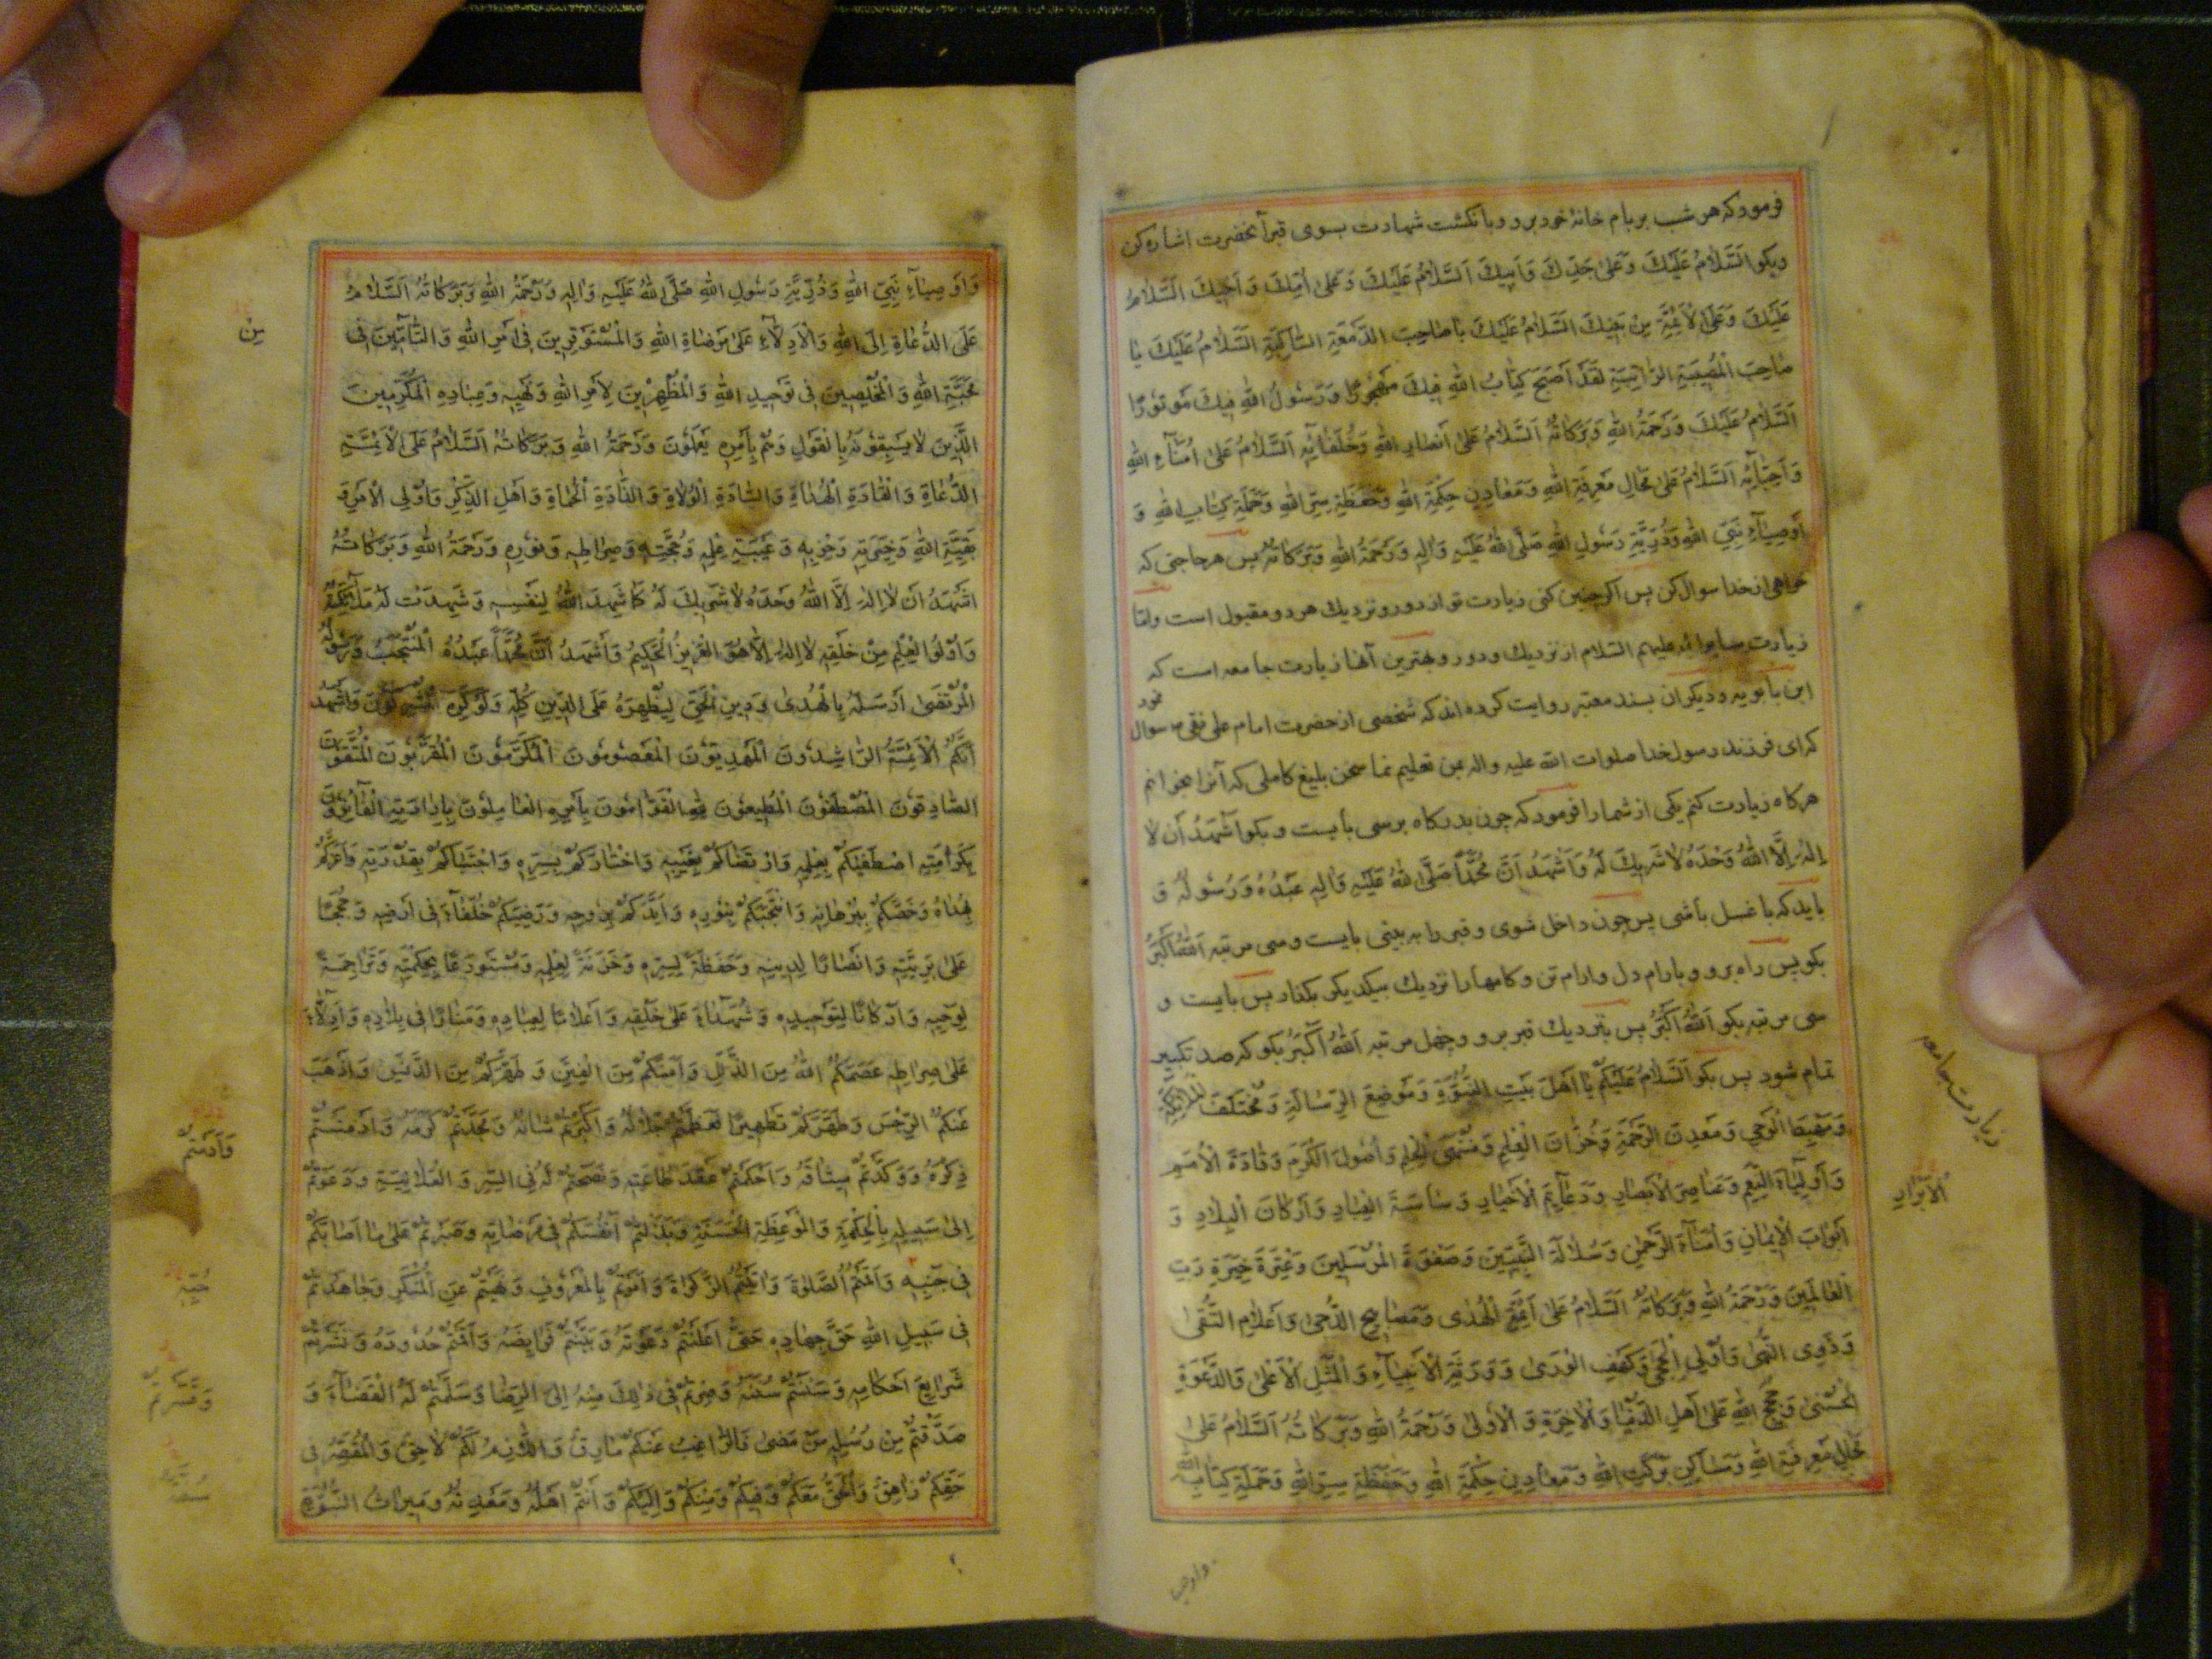 فرمود که هر شب بر بام خانهٔ خود برو و بانگشت شهادت بسوی قبر آنحضرت اشاره کن
وبکو اَلسَّلامُ عَلَيْكَ وَعَلىٰ جَدِّكَ وَاَبيكَ اَلسَّلامُ عَلَيْكَ وَعَلىٰ اُمِّكَ وَاَخيكَ اَلسَّلامُ
عَلَيْكَ وَعَلَى الْاَئِمَّةِ مِنْ بَنيكَ اَلسَّلامُ عَلَيْكَ يا صاحِبَ الدَّمْعَةِ السّاكِبَةِ اَلسَّلامُ عَلَيْكَ يا
صاحِبَ الْمُصيبَةِ الرّاتِبَةِ لَقَدْ اَصْبَحَ كِتابُ اللهِ فيكَ مَهْجُورًا وَرَسُولُ اللهِ فيكَ مَوْتُورًا
اَلسَّلامُ عَلَيْكَ وَرَحْمَةُ اللهِ وَبَرَكاتُهُ اَلسَّلامُ عَلىٰ اَنْصارِ اللهِ وَخُلَفائِهِ اَلسَّلامُ عَلىٰ اُمَنآءِ اللهِ
وَاَحِبّآئِهِ اَلسَّلامُ عَلىٰ مَحالِّ مَعْرِفَةِ اللهِ وَمَعادِنِ حِكْمَةِ اللهِ وَحَفَظَةِ سِرِّ اللهِ وَحَمَلَةِ كِتابِ اللهِ وَ
اَوْصِيآءِ نَبِيِّ اللهِ وَذُرِّيَّةِ رَسُولِ اللهِ صَلَّى اللهُ عَلَيْهِ وَالِهِ وَرَحْمَةُ اللهِ وَبَرَكاتُهُ پس هر حاجتی که
خواهی از خدا سوال کن پس اکر چنین کنی زیارت تو از دور و نزدیك هر دو مقبول است واما
زیارت سایر ائمه علیهم السلام از نزدیك ودور وبهترین آنها زیارت جامعه است که
ابن بابویه ودیکران بسند معتبر روایت کرده اند که شخصی از حضرت امام علی نقی ع سوال نمود
که ای فرزند رسول خدا صلوات الله علیه واله بمن تعلیم نما سخن بلیغ کاملی که آنرا بخوانم
هرکاه زیارت کنم یکی از شما را فرمود که چون بدرکاه برسی بایست وبکو اَشْهَدُ اَنْ لا
اِلهَ اِلَّا اللهُ وَحْدَهُ لا شَريكَ لَهُ وَاَشْهَدُ اَنَّ مُحَمَّدًا صَلَّى اللهُ عَلَيْهِ وَالِهِ عَبْدُهُ وَرَسُولُهُ و
باید که با غسل باشی پس چون داخل شوی وقبر را به بینی بایست وسی مرتبه اَللهُ اَكْبَرُ
بکو پس راه برو وبارام دل وارام تن وکامها را نزدیك بیکدیکر بکذار پس بایست و
سی مرتبه بکو اَللهُ اَكْبَرُ پس بنزدیك قبر برو وچهل مرتبه اَللهُ اَكْبَرُ بکو که صد تکبیر
تمام شود پس بکو اَلسَّلامُ عَلَيْكُمْ يا اَهْلَ بَيْتِ النُّبُوَّةِ وَمَوْضِعَ الرِّسالَةِ وَمُخْتَلَفَ الْمَلآئِكَةِ
وَمَهْبِطَ الْوَحْيِ وَمَعْدِنَ الرَّحْمَةِ وَخُزّانَ الْعِلْمِ وَمُنْتَهَى الْحِلْمِ وَاُصُولَ الْكَرَمِ وَقادَةَ الْاُمَمِ
وَاَوْلِيآءَ النِّعَمِ وَعَناصِرَ الْاَبْصارِ وَدَعآئِمَ الْاَخْيارِ وَساسَةَ الْعِبادِ وَاَرْكانَ الْبِلادِ وَ
اَبْوابَ الْايمانِ وَاُمَنآءَ الرَّحْمٰنِ وَسُلالَةَ النَّبِيّينَ وَصَفْوَةَ الْمُرْسَلينَ وَعِتْرَةَ خِيَرَةِ رَبِّ
الْعالَمينَ وَرَحْمَةُ اللهِ وَبَرَكاتُهُ اَلسَّلامُ عَلىٰ اَئِمَّةِ الْهُدىٰ وَمَصابيحِ الدُّجىٰ وَاَعْلامِ التُّقىٰ
وَذَوِى النُّهىٰ وَاُولِى الْحِجىٰ وَكَهْفِ الْوَرىٰ وَوَرَثَةِ الْاَنْبِيآءِ وَالْمَثَلِ الْاَعْلىٰ وَالدَّعْوَةِ
الْحُسْنىٰ وَحُجَجِ اللهِ عَلىٰ اَهْلِ الدُّنْيا وَالْاخِرَةِ وَالْاُولىٰ وَرَحْمَةُ اللهِ وَبَرَكاتُهُ اَلسَّلامُ عَلىٰ
مَحالِّ مَعْرِفَةِ اللهِ وَمَساكِنِ بَرَكَةِ اللهِ وَمَعادِنِ حِكْمَةِ اللهِ وَحَفَظَةِ سِرِّ اللهِ وَحَمَلَةِ كِتابِ اللهِ
زیارت جامعه
الْاَبْرارِ
واوصیا
وَاَوْصِيآءِ نَبِيِّ اللهِ وَذُرِّيَّةِ رَسُولِ اللهِ صَلَّى اللهُ عَلَيْهِ وَالِهِ وَرَحْمَةُ اللهِ وَبَرَكاتُهُ اَلسَّلامُ
عَلَى الدُّعاةِ اِلَى اللهِ وَالْاَدِلّآءِ عَلىٰ مَرْضاةِ اللهِ وَالْمُسْتَوْفِرينَ فى اَمْرِ اللهِ وَالتّآمّينَ فى
مَحَبَّةِ اللهِ وَالْمُخْلِصينَ فى تَوْحيدِ اللهِ وَالْمُظْهِرينَ لِاَمْرِ اللهِ وَنَهْيِهِ وَعِبادِهِ الْمُكْرَمينَ
الَّذينَ لا يَسْبِقُونَهُ بِالْقَوْلِ وَهُمْ بِاَمْرِهِ يَعْمَلُونَ وَرَحْمَةُ اللهِ وَبَرَكاتُهُ اَلسَّلامُ عَلَى الْاَئِمَّةِ
الدُّعاةِ وَالْقادَةِ الْهُداةِ وَالسّادَةِ الْوُلاةِ وَالذّادَةِ الْحُماةِ وَاَهْلِ الذِّكْرِ وَاُولِى الْاَمْرِ وَ
بَقِيَّةِ اللهِ وَخِيَرَتِهِ وَحِزْبِهِ وَعَيْبَةِ عِلْمِهِ وَحُجَّتِهِ وَصِراطِهِ وَنُورِهِ وَرَحْمَةُ اللهِ وَبَرَكاتُهُ
اَشْهَدُ اَنْ لا اِلهَ اِلَّا اللهُ وَحْدَهُ لا شَريكَ لَهُ كَما شَهِدَ اللهُ لِنَفْسِهِ وَشَهِدَتْ لَهُ مَلآئِكَتُهُ
وَاُولُوا الْعِلْمِ مِنْ خَلْقِهِ لا اِلهَ اِلّا هُوَ الْعَزيزُ الْحَكيمُ وَاَشْهَدُ اَنَّ مُحَمَّدًا عَبْدُهُ الْمُنْتَجَبُ وَرَسُولُهُ
الْمُرْتَضىٰ اَرْسَلَهُ بِالْهُدىٰ وَدينِ الْحَقِّ لِيُظْهِرَهُ عَلَى الدّينِ كُلِّهِ وَلَوْ كَرِهَ الْمُشْرِكُونَ وَاَشْهَدُ
اَنَّكُمُ الْاَئِمَّةُ الرّاشِدُونَ الْمَهْدِيُّونَ الْمَعْصُومُونَ الْمُكَرَّمُونَ الْمُقَرَّبُونَ الْمُتَّقُونَ
الصّادِقُونَ الْمُصْطَفَوْنَ الْمُطيعُونَ لِلّٰهِ الْقَوّامُونَ بِاَمْرِهِ الْعامِلُونَ بِاِرادَتِهِ الْفآئِزُونَ
بِكَرامَتِهِ اصْطَفيٰكُمْ بِعِلْمِهِ وَارْتَضاكُمْ لِغَيْبِهِ وَاخْتارَكُمْ لِسِرِّهِ وَاجْتَباكُمْ بِقُدْرَتِهِ وَاَعَزَّكُمْ
بِهُداهُ وَخَصَّكُمْ بِبُرْهانِهِ وَانْتَجَبَكُمْ بِنُورِهِ وَاَيَّدَكُمْ بِرُوحِهِ وَرَضِيَكُمْ خُلَفآءَ فى اَرْضِهِ وَحُجَجًا
عَلىٰ بَرِيَّتِهِ وَاَنْصارًا لِدينِهِ وَحَفَظَةً لِسِرِّهِ وَخَزَنَةً لِعِلْمِهِ وَمُسْتَوْدَعًا لِحِكْمَتِهِ وَتَراجِمَةً
لِوَحْيِهِ وَاَرْكانًا لِتَوْحيدِهِ وَشُهَدآءَ عَلىٰ خَلْقِهِ وَاَعْلامًا لِعِبادِهِ وَمَنارًا فى بِلادِهِ وَاَدِلّآءَ
عَلىٰ صِراطِهِ عَصَمَكُمُ اللهُ مِنَ الزَّلَلِ وَآمَنَكُمْ مِنَ الْفِتَنِ وَطَهَّرَكُمْ مِنَ الدَّنَسِ وَاَذْهَبَ
عَنْكُمُ الرِّجْسَ وَطَهَّرَكُمْ تَطْهيرًا فَعَظَّمْتُمْ جَلالَهُ وَاَكْبَرْتُمْ شَاْنَهُ وَمَجَّدْتُمْ كَرَمَهُ وَاَدْمَنْتُمْ
ذِكْرَهُ وَوَكَّدْتُمْ ميثاقَهُ وَاَحْكَمْتُمْ عَقْدَ طاعَتِهِ وَنَصَحْتُمْ لَهُ فِى السِّرِّ وَالْعَلانِيَةِ وَدَعَوْتُمْ
اِلىٰ سَبيلِهِ بِالْحِكْمَةِ وَالْمَوْعِظَةِ الْحَسَنَةِ وَبَذَلْتُمْ اَنْفُسَكُمْ فى مَرْضاتِهِ وَصَبَرْتُمْ عَلىٰ ما اَصابَكُمْ
فى جَنْبِهِ وَاَقَمْتُمُ الصَّلوٰةَ وَاٰتَيْتُمُ الزَّكوٰةَ وَاَمَرْتُمْ بِالْمَعْرُوفِ وَنَهَيْتُمْ عَنِ الْمُنْكَرِ وَجاهَدْتُمْ
فى سَبيلِ اللهِ حَقَّ جِهادِهِ حَتّىٰ اَعْلَنْتُمْ دَعْوَتَهُ وَبَيَّنْتُمْ فَرآئِضَهُ وَاَقَمْتُمْ حُدُودَهُ وَنَشَرْتُمْ
شَرايِعَ اَحْكامِهِ وَسَنَنْتُمْ سُنَّتَهُ وَصِرْتُمْ فى ذلِكَ مِنْهُ اِلَى الرِّضا وَسَلَّمْتُمْ لَهُ الْقَضآءَ وَ
صَدَّقْتُمْ مِنْ رُسُلِهِ مَنْ مَضىٰ فَالرّاغِبُ عَنْكُمْ مارِقٌ وَاللّازِمُ لَكُمْ لاحِقٌ وَالْمُقَصِّرُ فى
حَقِّكُمْ زاهِقٌ وَالْحَقُّ مَعَكُمْ وَفيكُمْ وَمِنْكُمْ وَاِلَيْكُمْ وَاَنْتُمْ اَهْلُهُ وَمَعْدِنُهُ وَميراثُ النُّبُوَّةِ